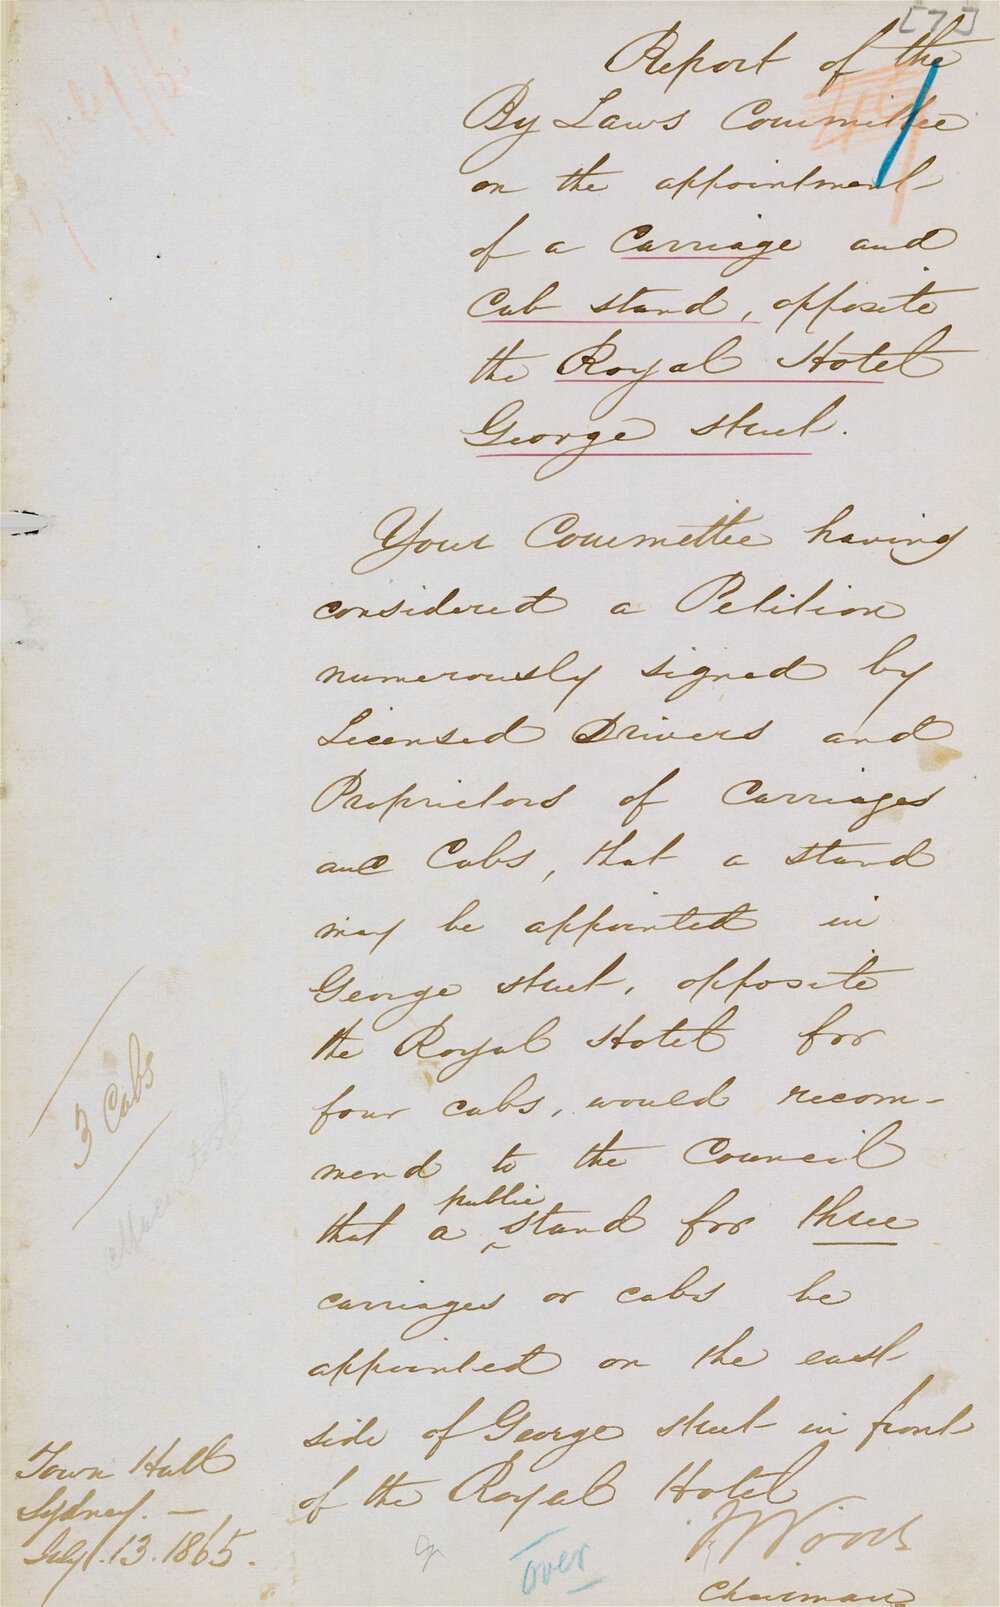 [7]
Report of the
By Laws Committee
on the appointment
of a Carriage and
Cab stand, opposite
the Royal Hotel
George street.
Your Committee having
considered a Petition
numerously signed by
Licensed Drivers and
Proprietors of Carriages
and Cabs, that a stand
may be appointed in
George street, opposite
the Royal Hotel for
four cabs, would recom-
mend to the Council
that a public stand for three
carriages or cabs be
appointed on the east
side of George street in front
of the Royal Hotel
3 Cabs
Town Hall
Sydney. —
July. 13. 1865.
over
Chairman